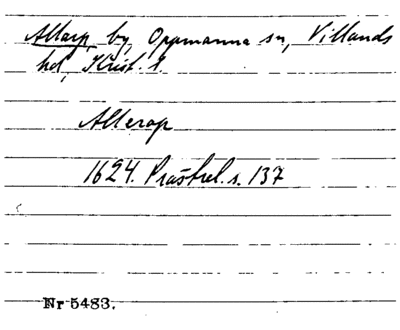 Allarp by, Oppmanna sn, Villands
hd, Krist. l.
Allerop
1624. Prästrel. s. 137
Nr 5483.